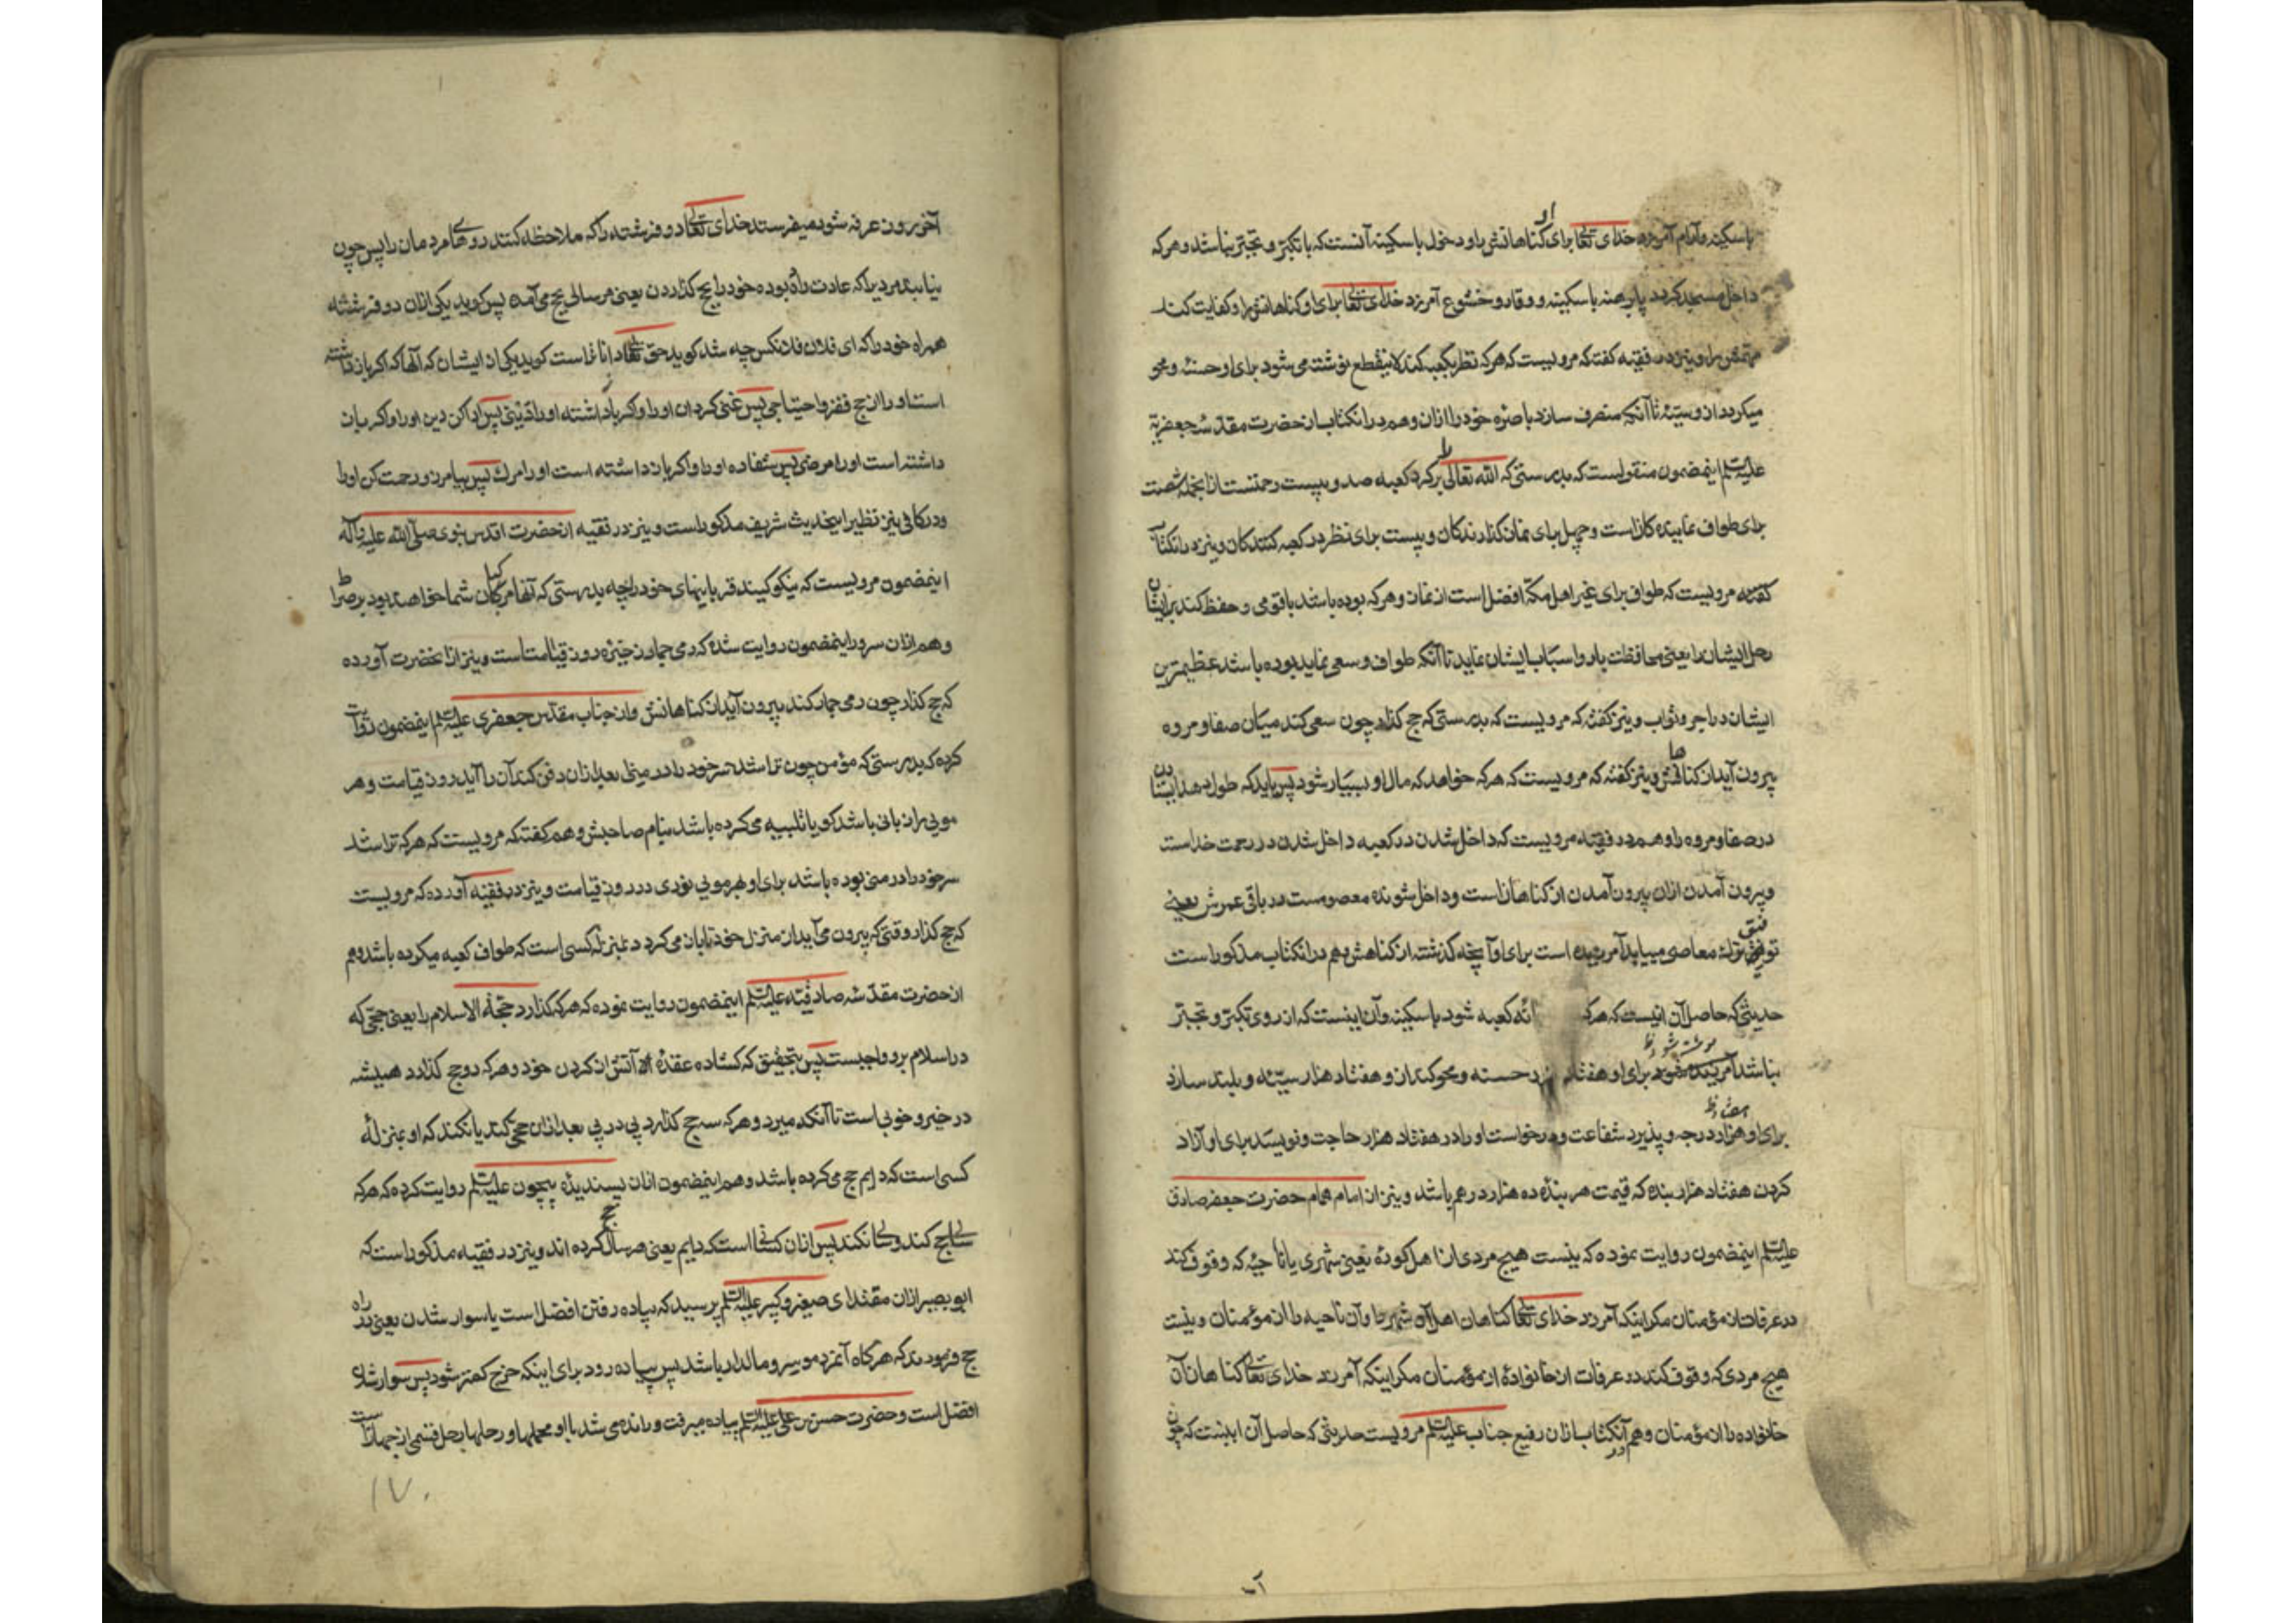 باسکینه و آرام آمرزد خدای تعالی برای او کناهانش را و دخول باسکینه آنست که با تکبر و تجبر نباشد و هرکه
داخل مسجد کردد پابرهنه باسکینه و وقار و خشوع آمرزد خدای تعالی برای او کناهانش را و کفایت کند
را و نیز در فقیه کفته که مرویست که هرکه نظر بکعبه کند لاینقطع نوشته می شود برای او حسنه و محو
میکردد از و سیئه تا آنکه منصرف سازد باصره خود را ازان و هم در انکتاب از حضرت مقدسه جعفریة
علیه السلام اینمضمون منقولست که بدرستی که الله تعالی را برکرد کعبه صد و بیست رحمتست از انجمله شصت
برای طواف نماینده کانست و چهل برای نماز کذارندکان و بیست برای نظر در کعبه کنندکان و نیز در انکتاب
کفته مرویست که طواف برای غیر اهل مکه افضل است از نماز و هرکه بوده باشد با قومی و حفظ کند برایشان
رحل ایشان را یعنی محافظت بار و اسباب ایشان نماید تا آنکه طواف و سعی نماید بوده باشد عظیمترین
ایشان در اجر و ثواب و نیز کفته که مرویست که بدرستی که حج کذار چون سعی کند میان صفا و مروه
بیرون آید از کناهانش و نیز کفته که مرویست که هرکه خواهد که مال او بسیار شود پس باید که طول دهد ایستادن
در صفا و مروه را و هم در فقیه مرویست که داخل شدن در کعبه داخل شدن در رحمت خداست
و بیرون آمدن ازان بیرون آمدن از کناهانست و داخل شونده معصومست در باقی عمرش یعنی
توفیق ترک معاصی مییابد آمرزیده است برای او آنچه کذشته از کناهش و هم در انکتاب مذکور است
حدیثی که حاصل آن اینست که هرکه کعبه شود باسکینه و آن اینست که از روی تکبر و تجبر
نباشد برای او هفتاد هزار حسنه و محو کند ازو هفتاد هزار سیئه و بلند سازد
برای او هزار درجه و پذیرد شفاعت و درخواست او را در هفتاد هزار حاجت و نویسد برای او آزاد
کردن هفتاد هزار بنده که قیمت هر بنده ده هزار درهم باشد و نیز از امام همام حضرت جعفر صادق
علیه السلام اینمضمون روایت نموده که نیست هیچ مردی از اهل کوره یعنی شهری یا ناحیه که وقوف کند
در عرفات از مؤمنان مکر اینکه آمرزد خدای تعالی کناهان اهل آن شهر را و آن ناحیه را از مؤمنان و نیست
هیچ مردی که وقوف کند در عرفات از خانواده از مؤمنان مکر اینکه آمرزد خدای تعالی کناهان آن
خانواده را از مؤمنان و هم در آنکتاب ازان رفیع جناب علیه السلام مرویست حدیثی که حاصل آن اینست که چون
آخر روز عرفه شود میفرستد خدای تعالی دو فرشته را که ملاحظه کنند روهای مردمان را پس چون
نیابند مردیرا که عادت داده بوده خود را بحج کذاردن یعنی هر سالی بحج می آمده پس کوید یکی ازان دو فرشته
همراه خود را که ای فلان فلانکس چه شد کوید حق تعالی داناتر است کوید یکی از ایشان که آلها که اکر باز داشته
است او را از حج فقر و احتیاجی پس غنی کردان او را و اکر باز داشته او را قرضی پس ادا کن دین او را و اکر باز
داشته است او را مرضی پس شفا ده او را و اکر باز داشته است او را مرک پس بیامرز و رحمت کن او را
و در کافی نیز نظیر اینحدیث شریف مذکور است و نیز در فقیه از حضرت اقدس نبوی صلی الله علیه و آله
اینمضمون مرویست که نیکو کنید قربانیهای خود را چه بدرستی که آنها مرکبان شما خواهند بود بر صراط
و هم ازان سرور اینمضمون روایت شده که رمی جمار ذخیره روز قیامتست و نیز ازانحضرت آورده
که حج کذار چون رمی جمار کند بیرون آید از کناهانش و از جناب مقدس جعفری علیه السلام اینمضمون روایت
کرده که بدرستی که مؤمن چون تراشد سر خود را در منی بعد ازان دفن کند آن را آید روز قیامت و هر
مویی را زبانی باشد کویا تلبیه می کرده باشد بنام صاحبش و هم کفته که مرویست که هرکه تراشد
سر خود را در منی بوده باشد برای او بهر مویی نوری در روز قیامت و نیز در فقیه آورده که مرویست
که حج کذار وقتی که بیرون می آید از منزل خود تا باز می کردد بمنزله کسی است که طواف کعبه میکرده باشد و هم
از حضرت مقدسه صادقیه علیه السلام اینمضمون روایت نموده که هرکه کذارد حجة الاسلام را یعنی حجی که
در اسلام برو واجبست پس بتحقیق که کشاده عقده از آتش از کردن خود و هرکه دو حج کذارد همیشه
در خیر و خوبی است تا آنکه میرد و هرکه سه حج کذارد پی در پی بعد ازان حج کند یا نکند که او بمنزلهٔ
کسی است که دایم حج می کرده باشد و هم اینمضمون ازان پسندیده بیچون علیه السلام روایت کرده که هرکه
سالی حج کند و سالی نکند پس ازان کسانی است که دایم یعنی هر سال حج کرده اند و نیز در فقیه مذکور است که
ابو بصیر ازان مقتدای صغیر و کبیر علیه السلام پرسید که پیاده رفتن افضل است یا سوار شدن یعنی در راه
حج فرمودند که هرکاه آنمرد موسر و مالدار باشد پس پیاده رود برای اینکه خرج کمتر شود پس سوار شدن
افضل است و حضرت حسن بن علی علیه السلام پیاده میرفت و رانده می شد با او محملها و رحلها و رحل قسمی از جهاز است
۱۷۰